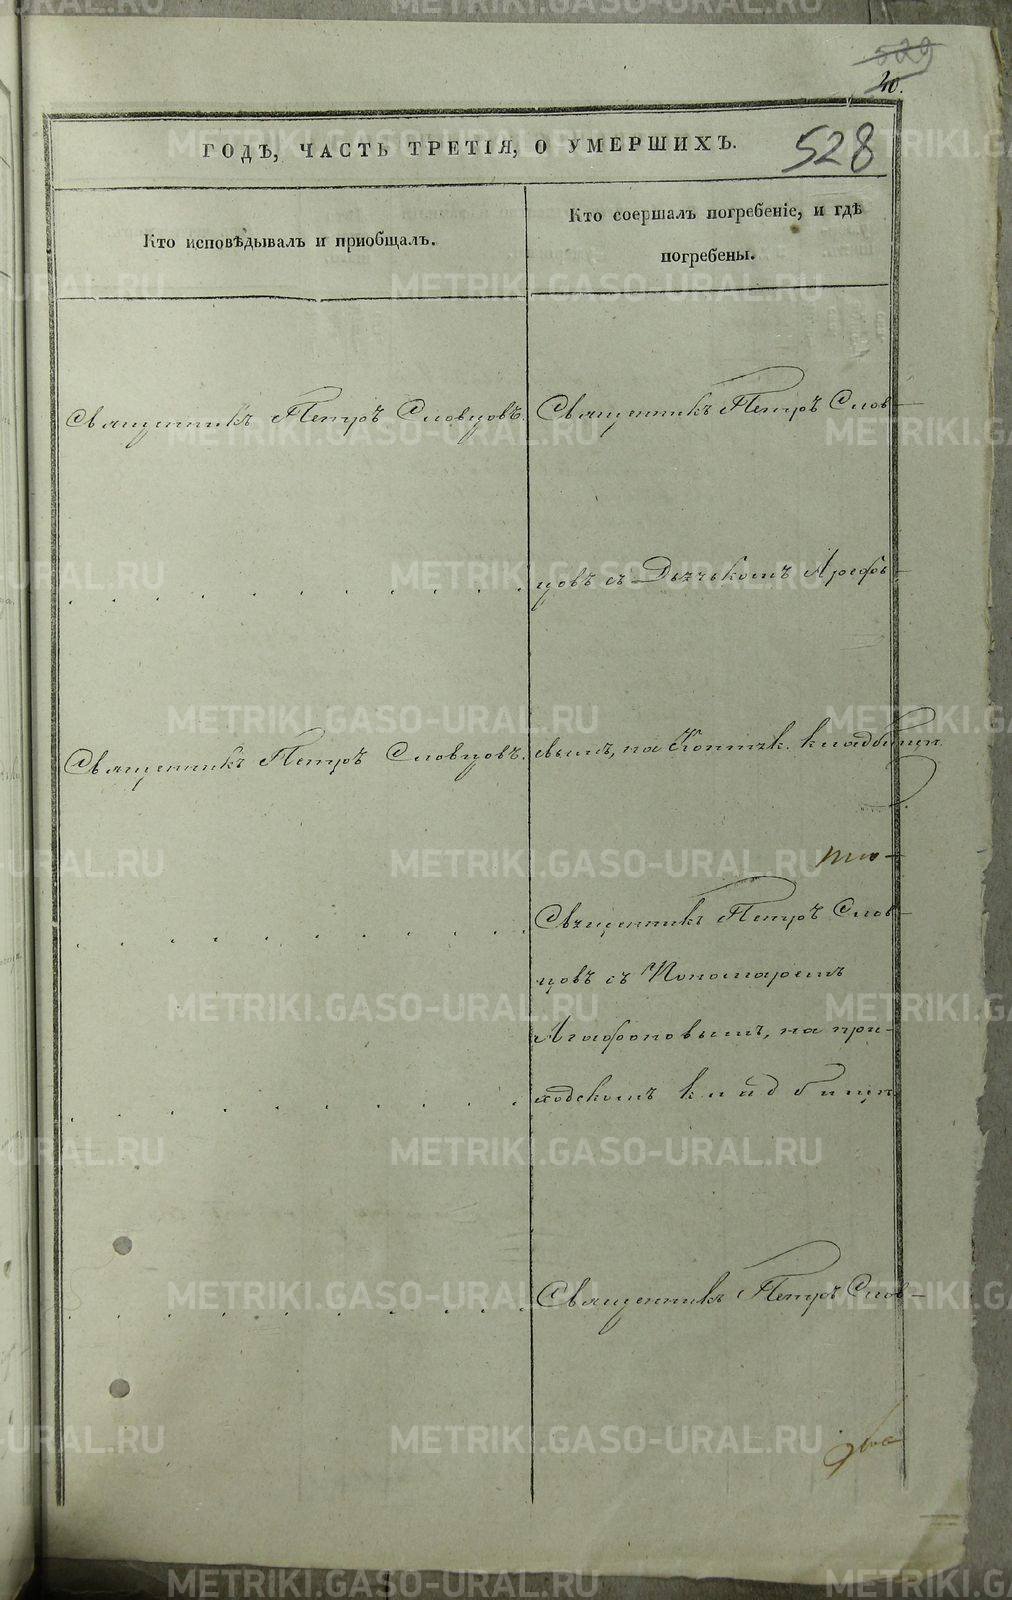 529
40.
ГОДЪ, ЧАСТЬ ТРЕТІЯ, О УМЕРШИХЪ.
528
Кто исповѣдывалъ и приобщалъ.
Кто соершалъ погребеніе, и гдѣ
погребены.
Священникъ Петръ Словцовъ.
Священникъ Петръ Слов-
цовъ съ Дьячькомъ Арефь-
Священникъ Петръ Словцовъ.
евымъ, на кладбищѣ.
Священникъ Петръ Слов-
цовъ съ Пономаремъ
Агафоновымъ, на при-
ходскомъ кладбищѣ
Священникъ Петръ Слов-
METRIKI.GASO-URAL.RU